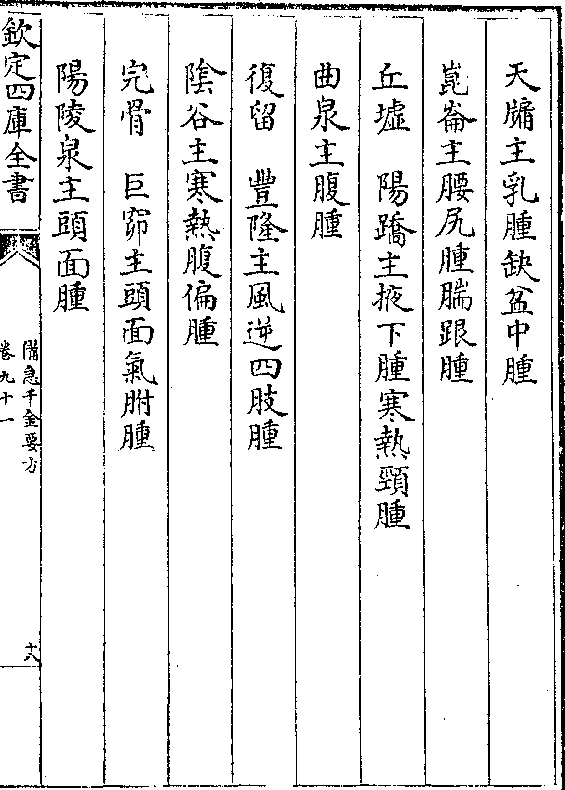 天牖主乳腫缺盆中腫
崑崙主腰尻腫腨跟腫
丘墟　陽蹻主掖下腫寒熱頸腫
曲泉主腹腫
復留　豐隆主風逆四肢腫
陰谷主寒熱腹偏腫
完骨　巨窌主頭面氣胕腫
陽陵泉主頭面腫
欽定四庫全書
備急千金要方
卷九十一
十八